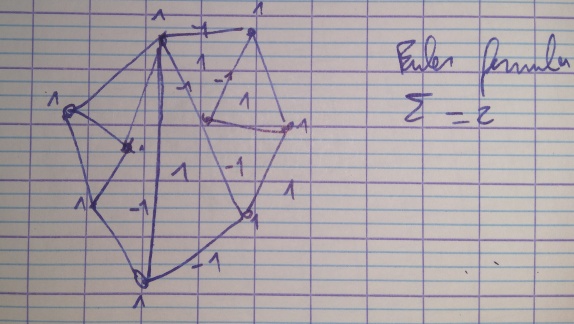 1
-1
1
1
-1
-1
1
1
1
1
-1
1
1
-1
1
1
-1
1
Euler formula
Σ = 2